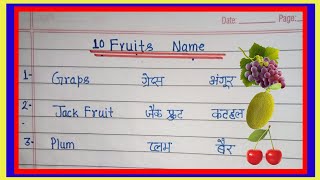 Date: Page:
10 Fruits Name
1- Graps ग्रेप्स अंगूर
2- Jack Fruit जैक फ्रूट कटहल
3- Plum प्लम बैर